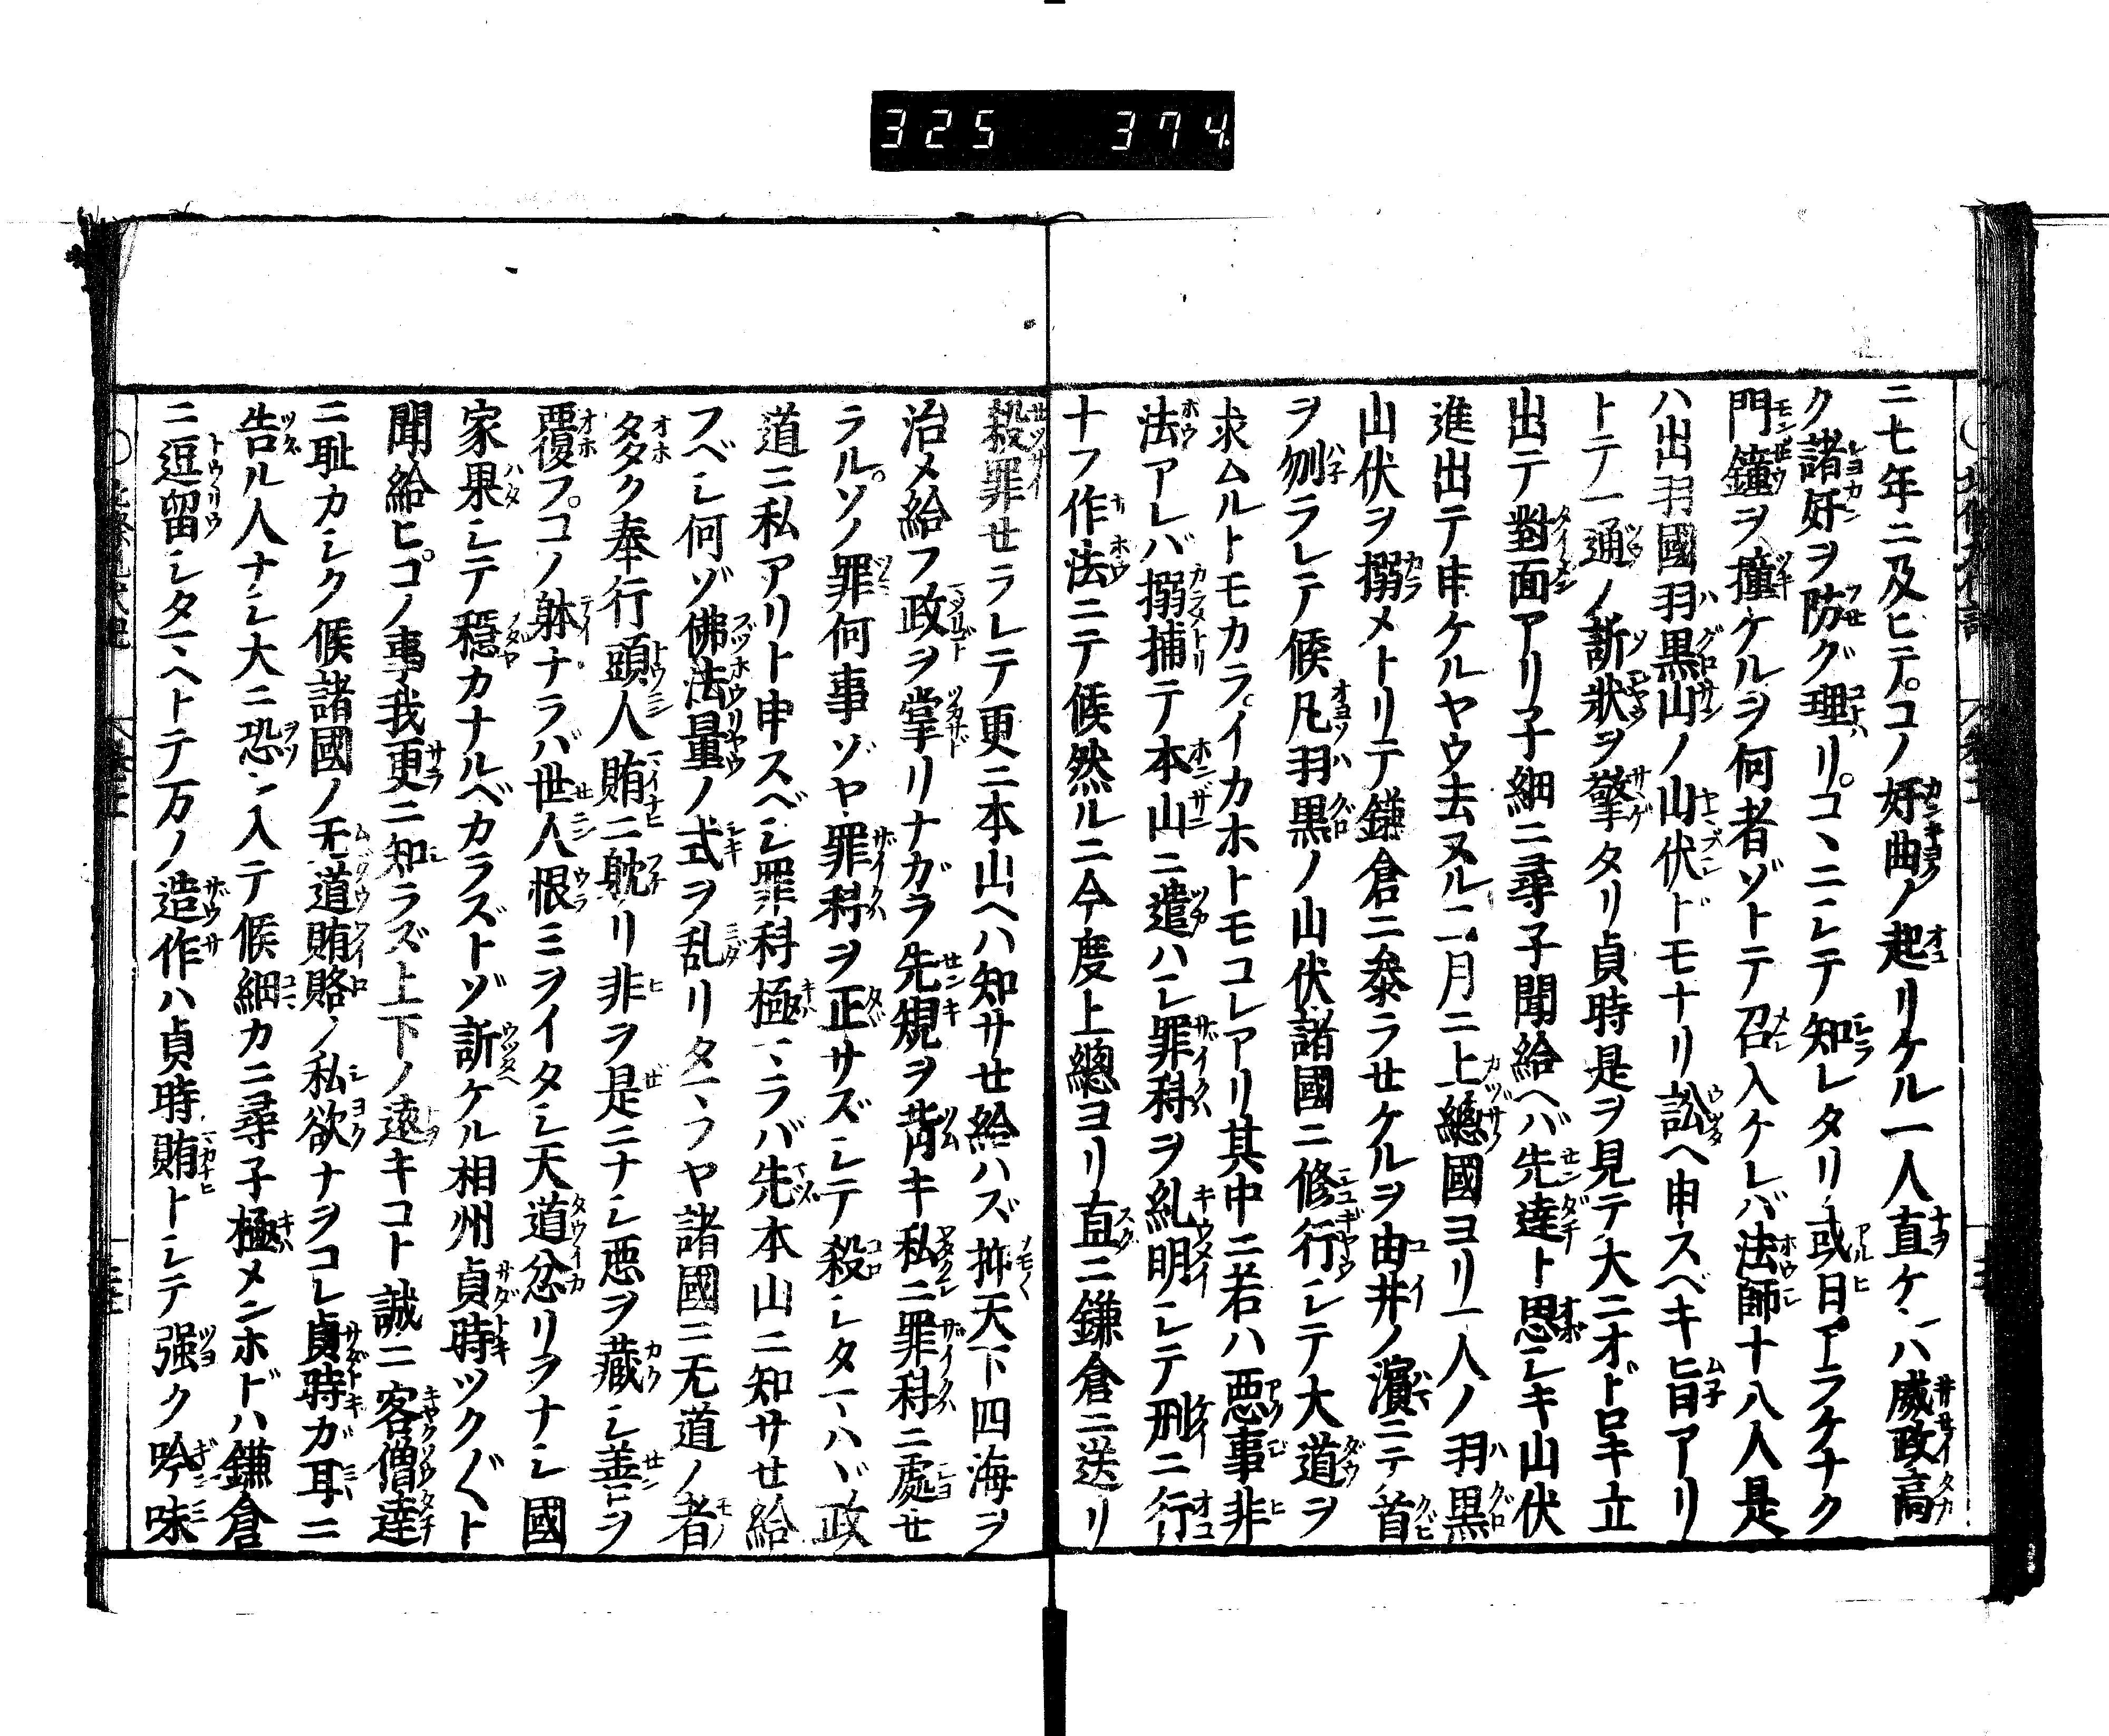 325 374
ニ七年ニ及ヒテ。コノ奸曲ノ起リケル一人直ケレハ威政高
ク諸奸ヲ防グ理リ。コヽニシテ知レタリ或日。エラケナク
門鐘ヲ撞ケルヲ何者ゾトテ召入ケレバ法師十八人是
ハ出羽國羽黒山ノ山伏ドモナリ訟ヘ申スベキ旨アリ
トテ一通ノ訴狀ヲ擎タリ貞時是ヲ見テ大ニオドロキ立
出テ對面アリ子細ニ尋子聞給ヘバ先達ト思シキ山伏
進出テ申ケルヤウ去ヌル二月ニ上總國ヨリ一人ノ羽黒
山伏ヲ搦メトリテ鎌倉ニ參ラセケルヲ由井ノ濵ニテ首
ヲ刎ラレテ候凡羽黒ノ山伏諸國ニ修行シテ大道ヲ
求ムルトモカラ。イカホトモコレアリ其中ニ若ハ悪事非
法アレバ搦捕テ本山ニ遣ハシ罪科ヲ糺明シテ刑ニ行
ナフ作法ニテ候然ルニ今度上總ヨリ直ニ鎌倉ニ送リ
殺罪せラレテ更ニ本山ヘハ知サせ給ハズ抑天下四海ヲ
治メ給フ政ヲ掌リナガラ先規ヲ背キ私ニ罪科ニ處せ
ラル。ソノ罪何事ゾヤ罪科ヲ正サズシテ殺シタマハヾ政
道ニ私アリト申スベシ罪科極マラバ先本山ニ知サせ給
フベシ何ゾ佛法量ノ式ヲ乱リタマフヤ諸國ニ无道ノ者
タヾク奉行頭人賄ニ耽リ非ヲ是ニナシ悪ヲ藏シ善ヲ
覆フ。コノ躰ナラバ世人恨ミヲイタシ天道忿リヲナシ國
家果シテ穏カナルベカラズトゾ訴ケル相州貞時ツク〲ト
聞給ヒ。コノ事我更ニ知ラズ上下ノ遠キコト誠ニ客僧達
ニ耻カシク候諸國ノ无道賄賂ノ私欲ナヲコレ貞時カ耳ニ
告ル人ナシ大ニ恐シ入テ候細カニ尋子極メンホドハ鎌倉
ニ逗留シタマヘトテ万ノ造作ハ貞時賄トシテ强ク吟味